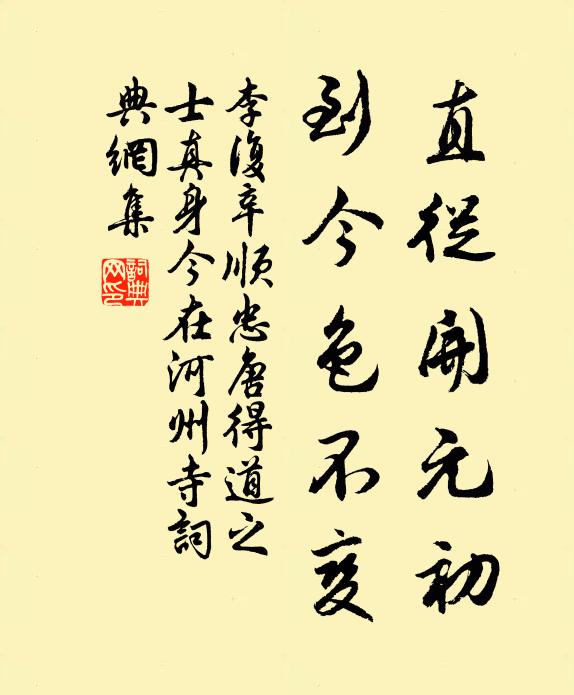 直從開元初
到今色不变
李復辛順忠唐得道之
士真身今在河州寺詞
典網集
詞典网印